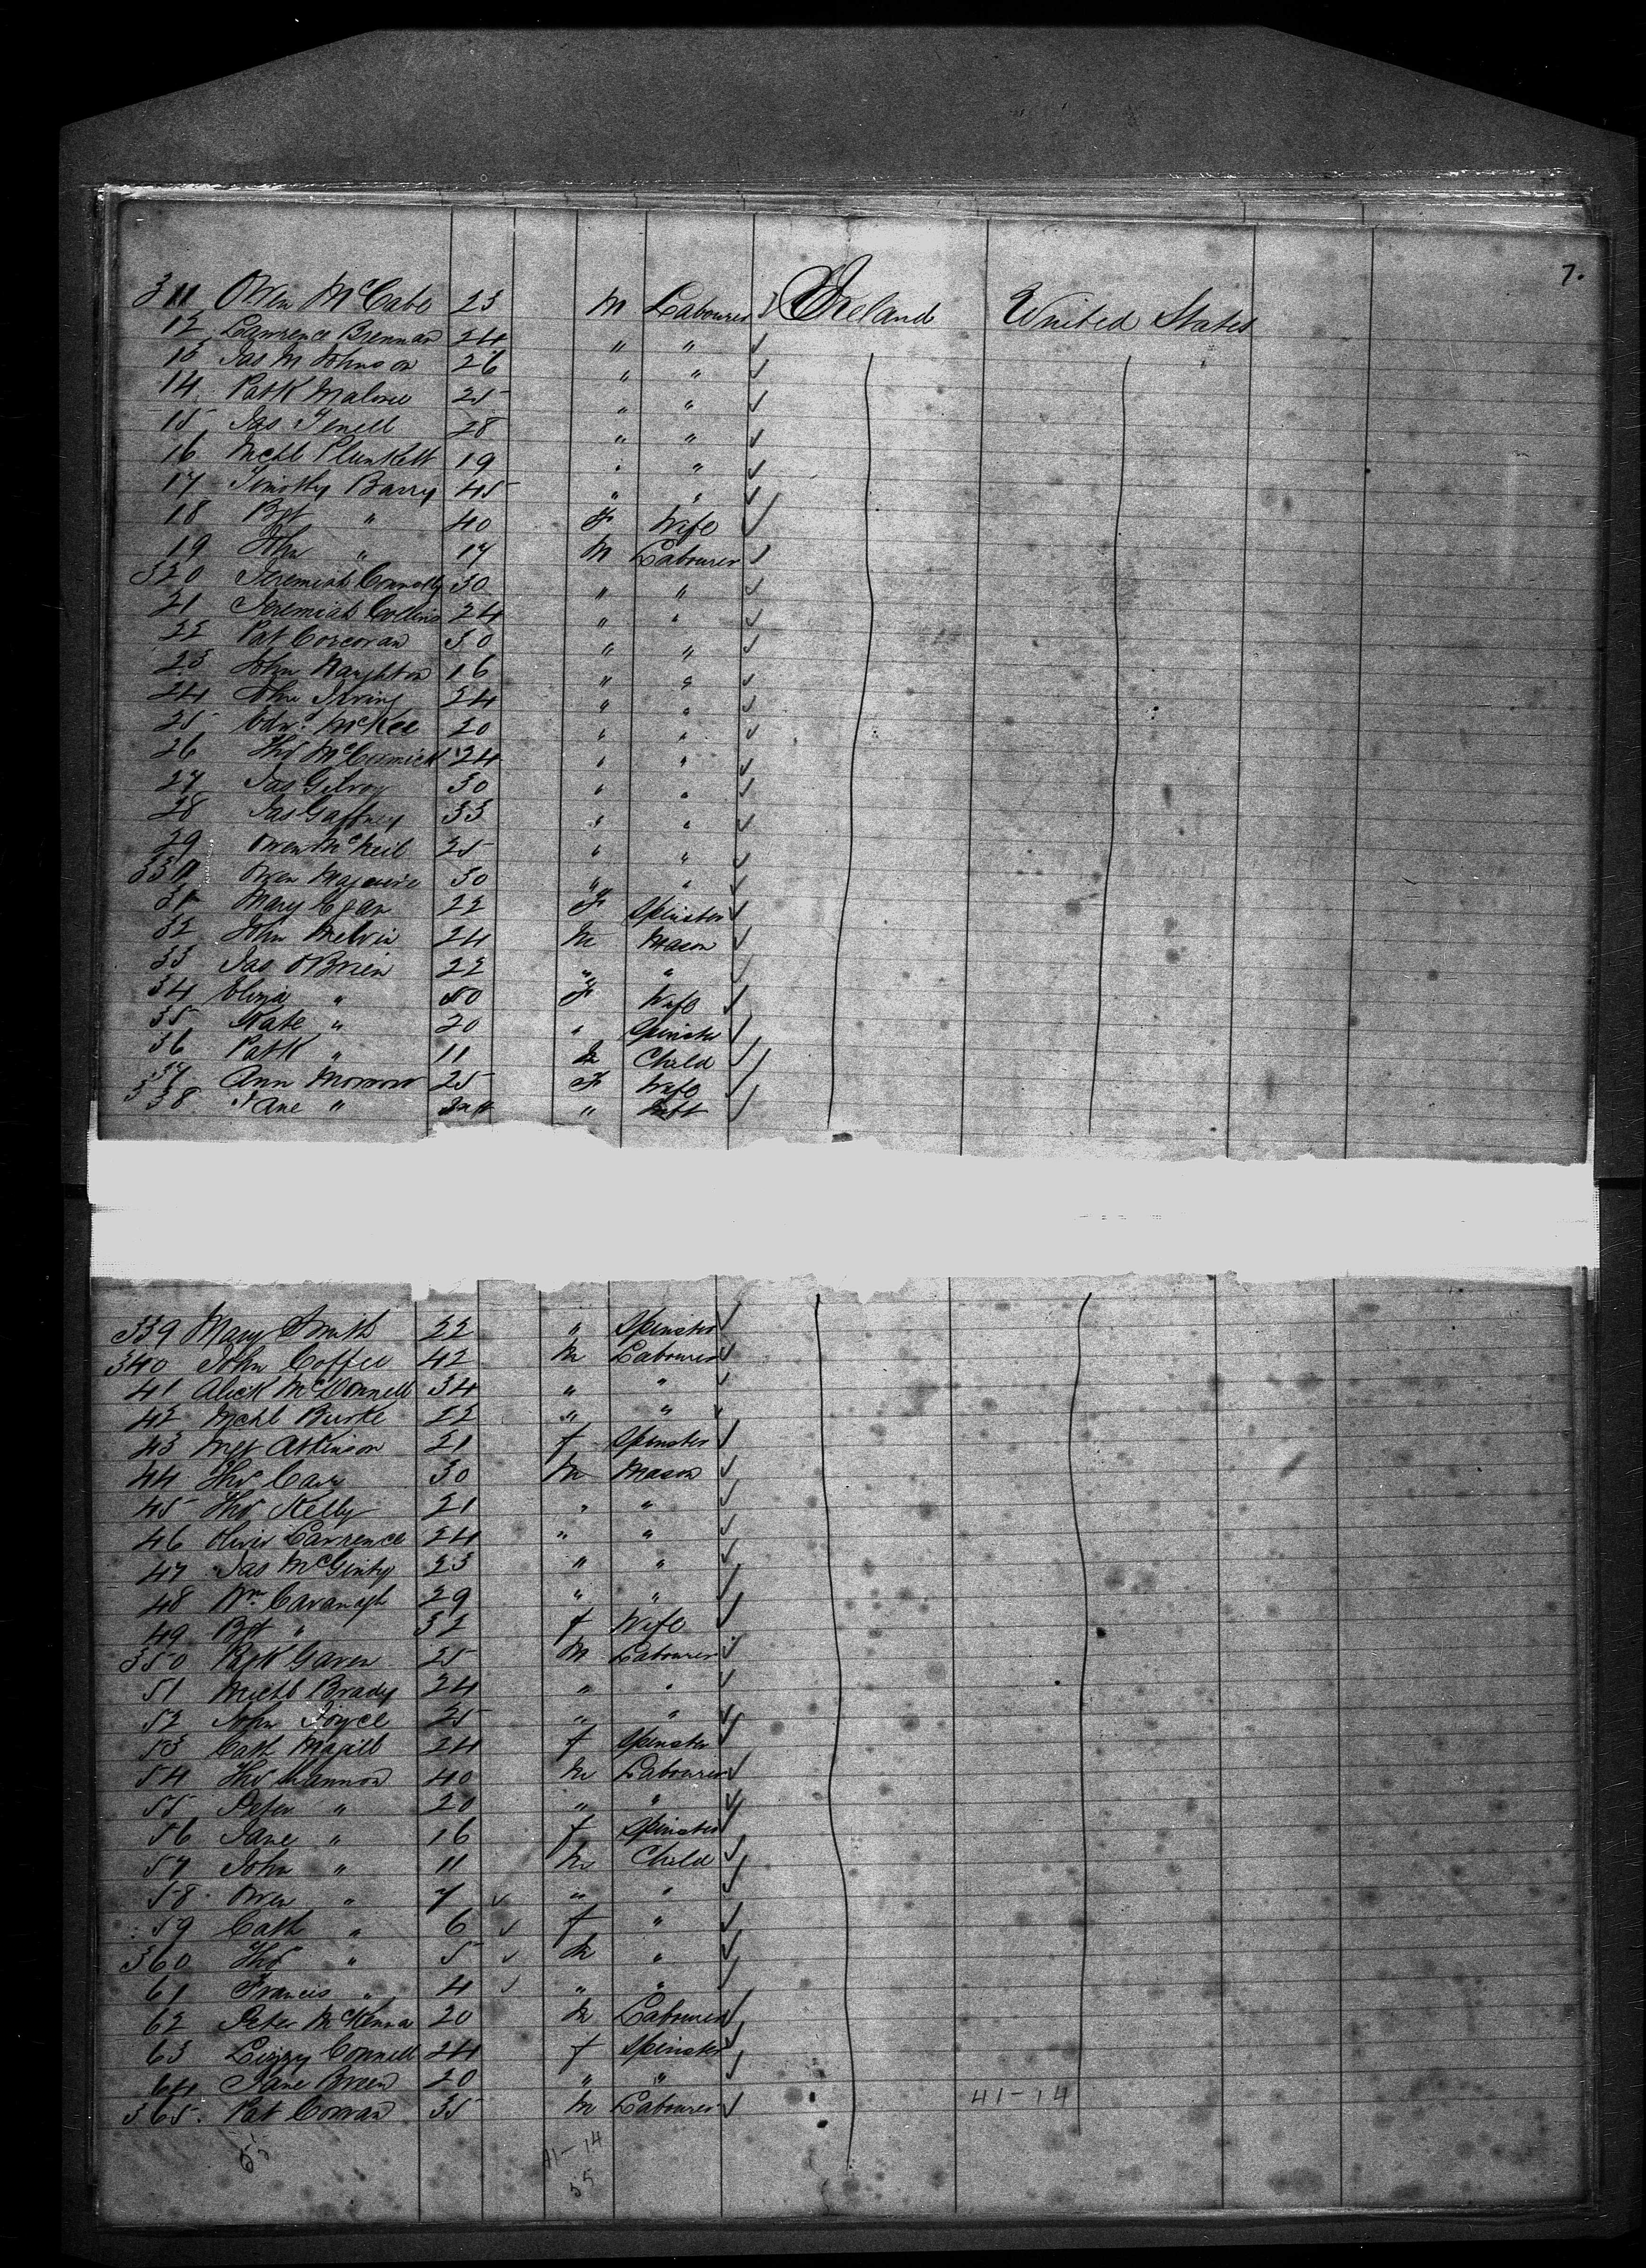 7.
311 Owen McCabe 23 M Labourer Ireland United States
12 Lawrence Brennan 24 " "
13 Jas M Johnson 26 " "
14 Patk Malone 25 " "
15 Jas 28 " "
16 Mchl Plunkett 19 " "
17 Timothy Barry 45 " "
18 Bgt " 40 F Wife
19 John " 17 M Labourer
320 Jeremiah Connolly 30 " "
21 Jeremiah Collins 24 " "
22 Pat Corcoran 30 " "
23 John Naughton 16 " "
24 John Irving 24 " "
25 Edwd McKee 20 " "
26 Thos McCormick 24 " "
27 Jas Gilroy 30 " "
28 Jas Gaffney 33 " "
29 Owen McNeil 25 " "
330 Owen Maguire 30 " "
31 Mary Egan 22 F Spinster
32 John Melvin 24 M Mason
33 Jas OBrien 22 " "
34 Eliza " 50 F Wife
35 Kate " 20 " Spinster
36 Patk " 11 M Child
37 Ann Morrow 25 F Wife
338 Jane " Inft " Inft
339 Mary Smith 22 " Spinster
340 John Coffee 42 M Labourer
41 Alick McDonnell 34 " "
42 Mchl Burke 22 " "
43 Mgt Atkinson 21 f Spinster
44 Thos 30 M Mason
45 Thos Kelly 21 " "
46 Oliver Lawrence 24 " "
47 Jas McGinty 23 " "
48 Wm Cavanagh 29 " "
49 Bgt " 32 f Wife
350 Patk Gaven 25 M Labourer
51 Michl Brady 24 " "
52 John Joyce 25 " "
53 Cath Magill 24 f Spinster
54 Thos Shannon 40 M Labourer
55 Peter " 20 " "
56 Jane " 16 f Spinster
57 John " 11 M Child
58 Owen " 7 " "
59 Cath " 6 f "
360 Thos " 5 M "
61 Francis " 4 " "
62 Peter McKenna 20 M Labourer
63 Lizzy Connell 24 f Spinster
64 Jane Breen 20 " "
365 Pat Conran 35 M Labourer
41-14
55 41-14
55